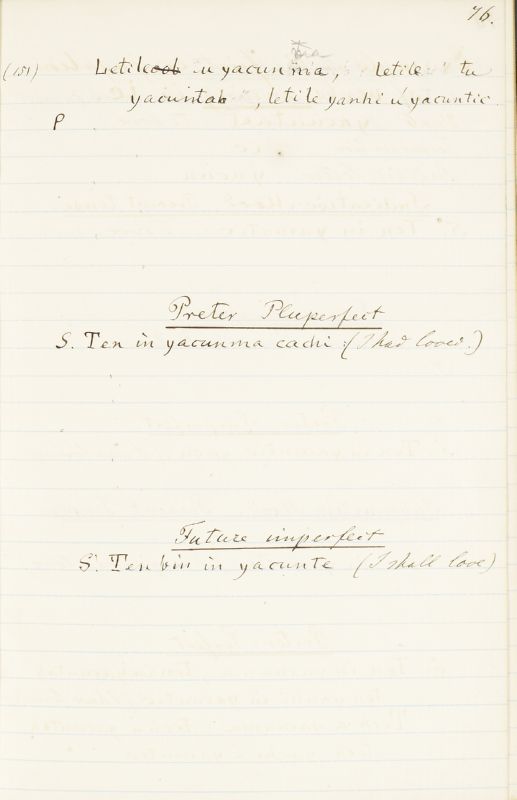 76.
ma
(151) Letileoob u yacunma, letile tu
yacuntah, letile yanhi u yacuntic
P
Preter Pluperfect
S. Ten in yacunma cachi (I had loved.)
Future imperfect
S. Ten bin in yacunte (I shall love)